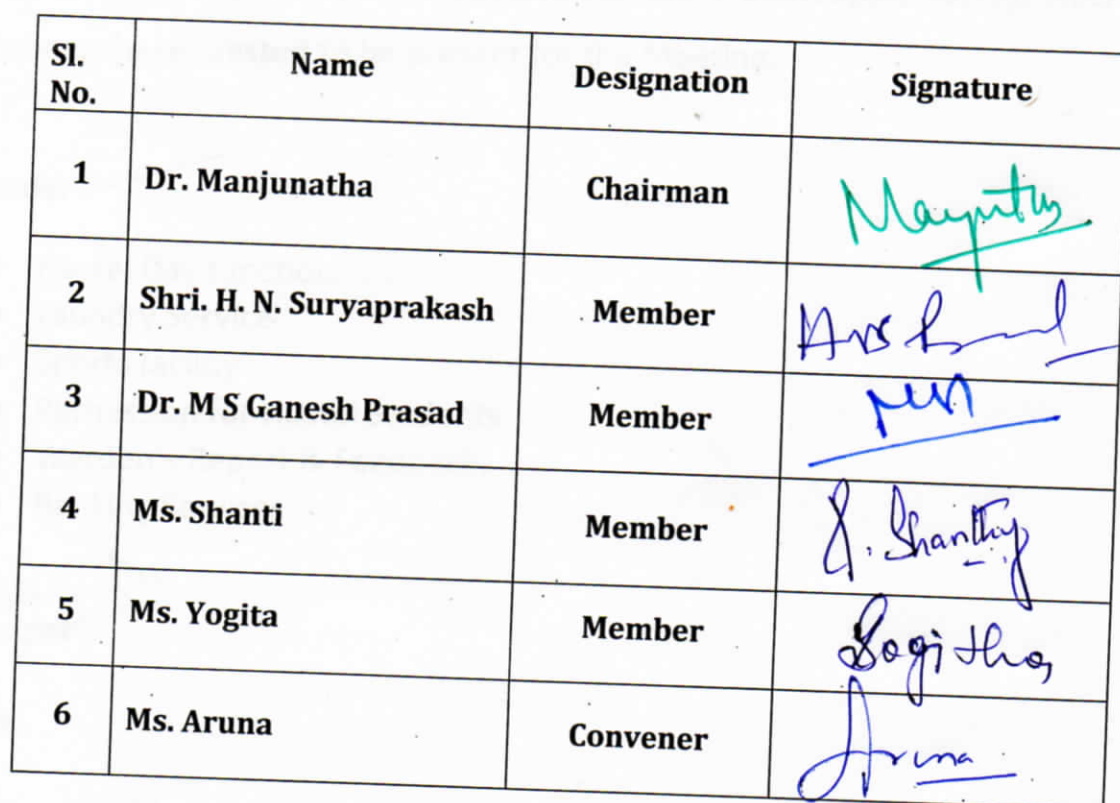 Sl. No. Name Designation Signature
1 Dr. Manjunatha Chairman
2 Shri. H. N. Suryaprakash Member
3 Dr. M S Ganesh Prasad Member
4 Ms. Shanti Member S. Shanthy
5 Ms. Yogita Member Yogitha
6 Ms. Aruna Convener Aruna